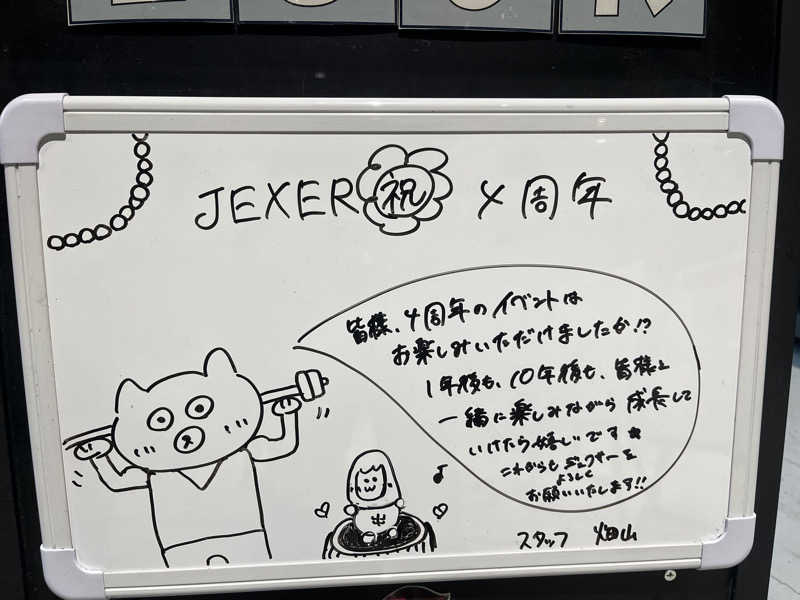 JEXER 祝 4周年
皆様、4周年のイベントは
お楽しみいただけましたか!?
1年後も、10年後も、皆様と
一緒に楽しみながら成長して
いけたら嬉しいです★
これからもジェクサーを
よろしく
お願いいたします!!
スタッフ 畑山